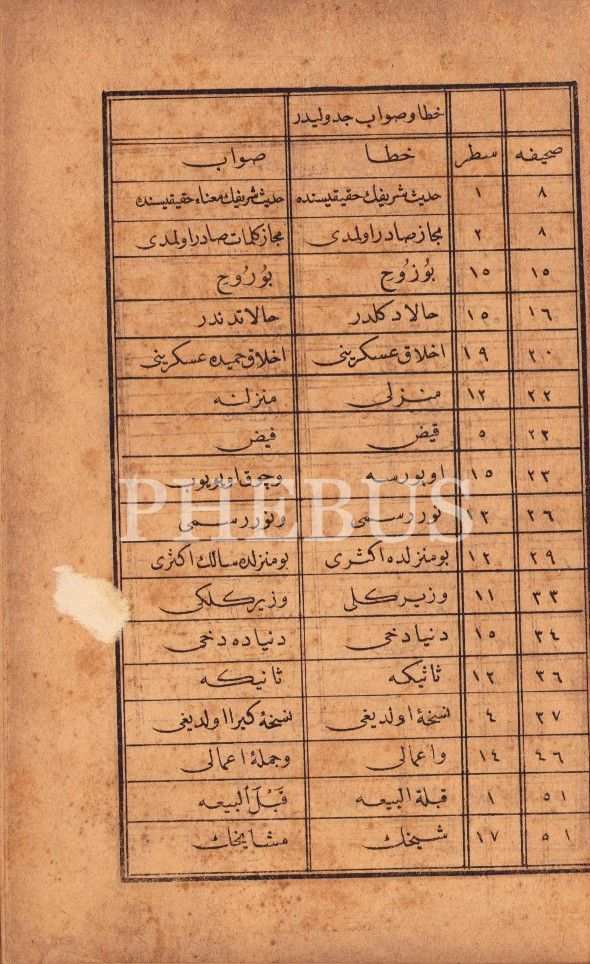 خطا و صواب جدوليدر
صحيفه سطر خطا صواب
٨ ١ حديث شريفك حقيقيسنده حديث شريفك معناء حقيقيسنده
٨ ٢ مجاز صادر اولمدى مجاز كلمات صادر اولمدى
١٥ ١٥ بُوزُوحِ بُورُوحِ
١٦ ١٥ حالا دكلدر حالاتدندر
٢٠ ١٩ اخلاق عسكرينى اخلاق حميده عسكرينى
٢٢ ١٢ منزلى منزلنه
٢٢ ٥ قيض فيض
٢٣ ١٥ اويورسه وچوق اويويوب
٢٦ ١٢ نور رسمى ونور رسمى
٢٩ ١٢ بو منزلده اكثرى بو منزلده سالك اكثرى
٣٣ ١١ وزير كلى وزير كلكى
٣٤ ١٥ دنيا دخى دنياده دخى
٣٦ ١٢ ثانيكه ثانيكه
٣٧ ٤ نسخۀ اولديغى نسخۀ كبرا اولديغى
٤٦ ١٤ واعمالى وجملۀ اعمالى
٥١ ١ قبلة البيعه قَبُلَ البيعه
٥١ ١٧ شيخك مشايخك
PHEBUS